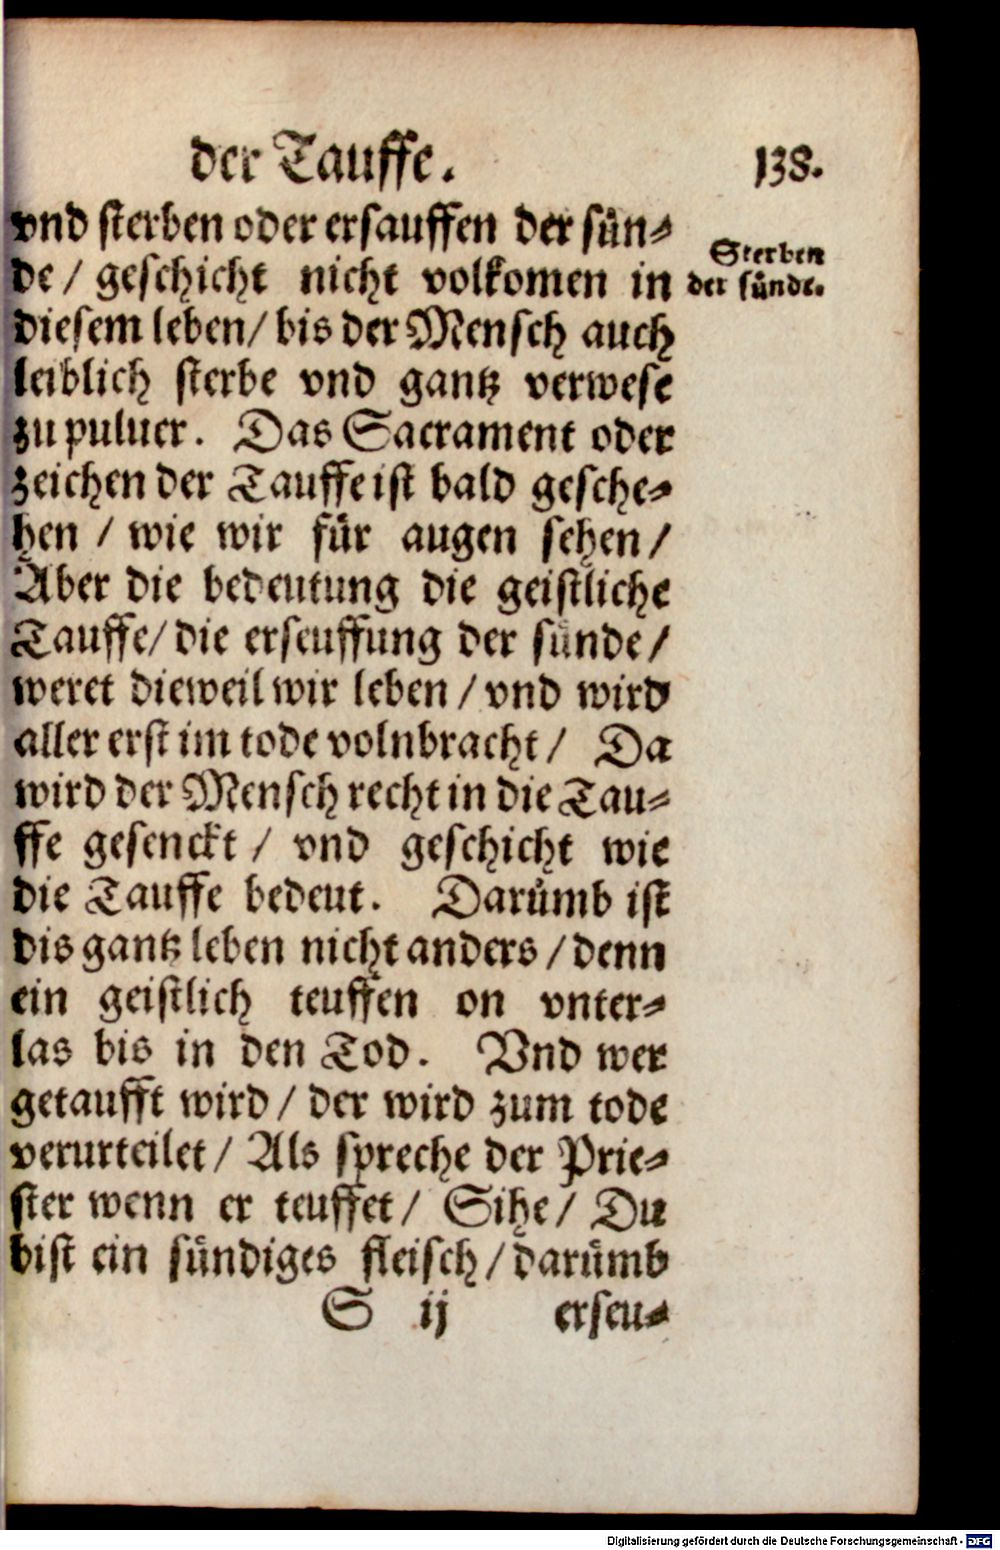 der Tauffe. 138.
vnd sterben oder ersauffen der sün-
de / geschicht nicht volkomen in
Sterben
der sünde.
diesem leben / bis der Mensch auch
leiblich sterbe vnd gantz verwese
zu puluer. Das Sacrament oder
zeichen der Tauffe ist bald gesche-
hen / wie wir für augen sehen /
Aber die bedeutung die geistliche
Tauffe / die erseuffung der sünde /
weret dieweil wir leben / vnd wird
aller erst im tode volnbracht / Da
wird der Mensch recht in die Tau-
ffe gesenckt / vnd geschicht wie
die Tauffe bedeut. Darümb ist
dis gantz leben nicht anders / denn
ein geistlich teuffen on vnter-
las bis in den Tod. Vnd wer
getaufft wird / der wird zum tode
verurteilet / Als spreche der Prie-
ster wenn er teuffet / Sihe / Du
bist ein sündiges fleisch / darümb
S ij erseu-
Digitalisierung gefördert durch die Deutsche Forschungsgemeinschaft - DFG